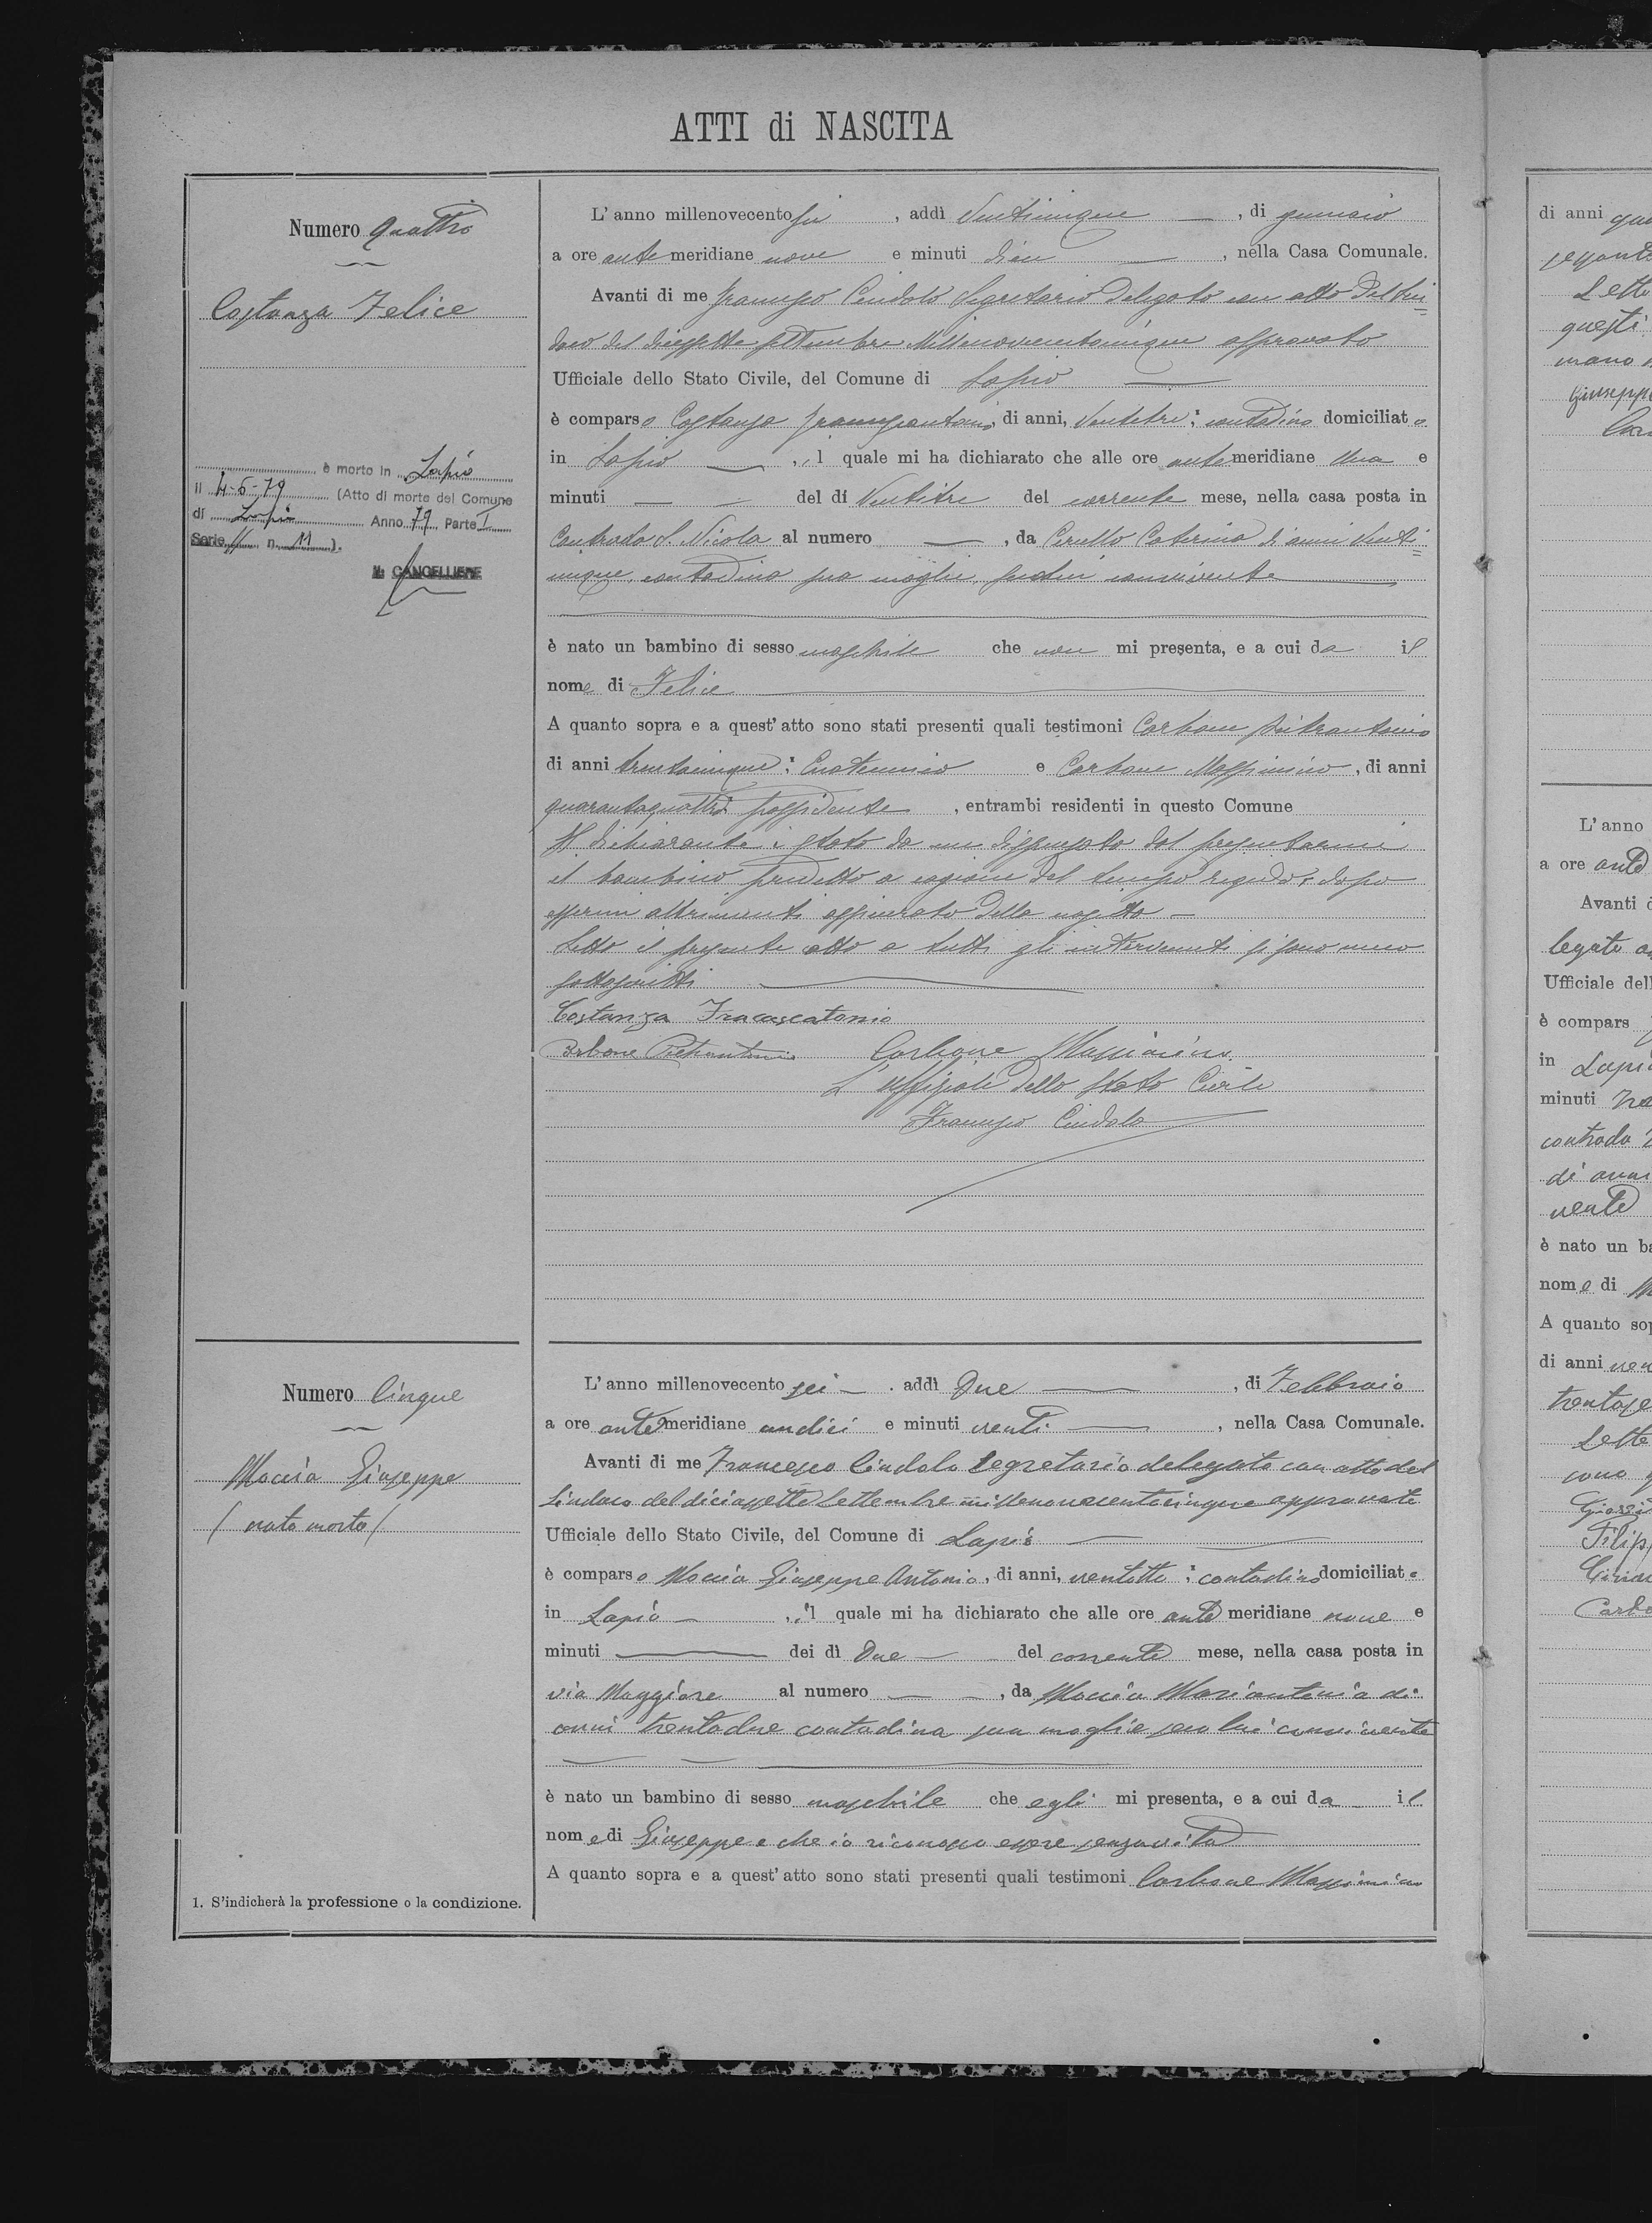 ATTI di NASCITA
Numero quattro
Costanza Felice
è morto in Lapio
il 4-6-79 (Atto di morte del Comune
di Lapio Anno 79 Parte I
Serie // n. 11 ).
IL CANCELLIERE
L'anno millenovecento sei, addì Venticinque, di gennaio
a ore antemeridiane nove e minuti dieci, nella Casa Comunale.
Avanti di me Francesco Cindolo Segretario delegato con atto del Sin=
daco del diciassette settembre Millenovecentocinque approvato
Ufficiale dello Stato Civile, del Comune di Lapio
è comparso Costanza Francescantonio, di anni, Ventitre; contadino domiciliato
in Lapio, il quale mi ha dichiarato che alle ore antemeridiane Una e
minuti — del dì Ventitre del corrente mese, nella casa posta in
Contrada S. Nicola al numero —, da Cerullo Caterina di anni Venti=
cinque contadina sua moglie seco lui convivente
è nato un bambino di sesso maschile che non mi presenta, e a cui da il
nome di Felice
A quanto sopra e a quest'atto sono stati presenti quali testimoni Carbone Pietrantonio
di anni trentacinque; e Carbone Massimino, di anni
quarantaquattro possidente, entrambi residenti in questo Comune
Il dichiarante è stato da me dispensato dal presentarmi
il bambino predetto a cagione del tempo rigido, dopo
essermi altrimenti assicurato della nascita —
Letto il presente atto a tutti gli intervenuti si sono meco
sottoscritti
Costanza Francescatonio
Carbone Pietrantonio Carbone Massimino
L'uffiziale dello Stato Civile
Francesco Cindolo
Numero Cinque
Moccia Giuseppe
/ nato morto /
L'anno millenovecento sei — addì Due, di Febbraio
a ore antemeridiane undici e minuti venti, nella Casa Comunale.
Avanti di me Francesco Cindolo Segretario delegato con atto del
Sindaco del diciassette Settembre millenovecentocinque approvato
Ufficiale dello Stato Civile, del Comune di Lapio
è comparso Moccia Giuseppe Antonio, di anni, ventotto; contadino domiciliato
in Lapio —, il quale mi ha dichiarato che alle ore antemeridiane nove e
minuti — dei dì Due — del corrente mese, nella casa posta in
via Maggiore al numero —, da Moccia Mariantonia di
anni trentadue contadina sua moglie seco lui convivente
è nato un bambino di sesso maschile che egli mi presenta, e a cui da il
nome di Giuseppe e che io riconosco essere senza vita
A quanto sopra e a quest'atto sono stati presenti quali testimoni Carbone Massimino
1. S'indicherà la professione o la condizione.
di anni
Lette
questi
mano
Giuseppe
L'anno
a ore ante
Avanti
Ufficiale
è compars
in Lapio
minuti
contrada
di anni
vente
è nato un
nome di
A quanto
di anni
Lette
sono